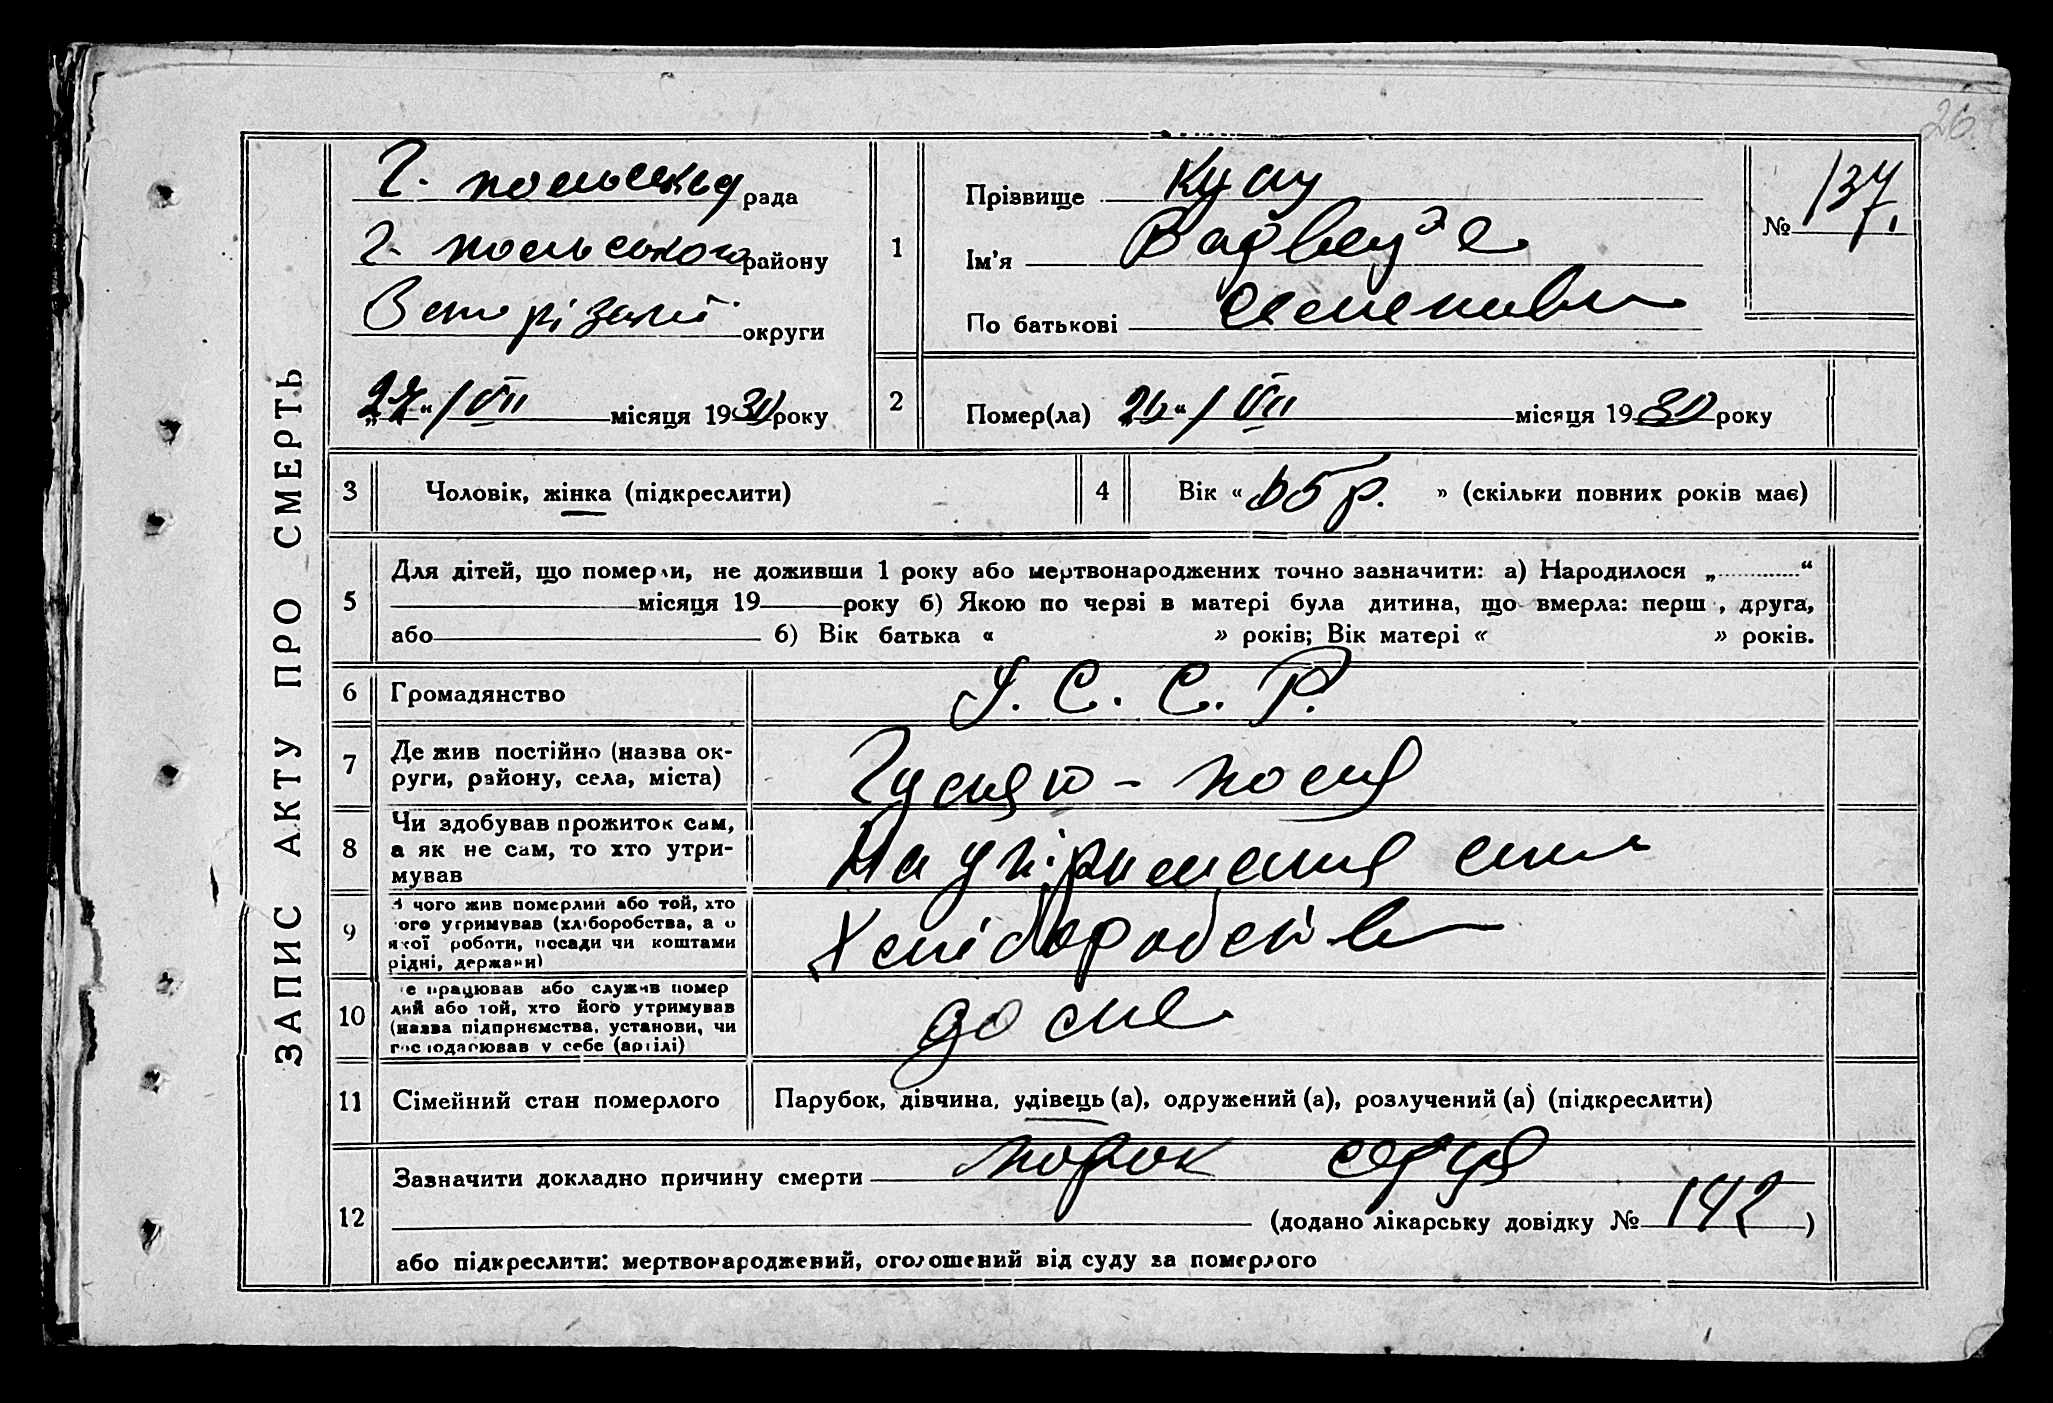 26.
ЗАПИС АКТУ ПРО СМЕРТЬ
Г. польська рада
Г. польського району
округи
„27“ / VII місяця 1930 року
1
Прізвище
Ім'я
По батькові
№ 137.
2
Помер(ла) „26“ / VII місяця 1930 року
3
Чоловік, жінка (підкреслити)
4
Вік « 65 р. » (скільки повних років має)
5
Для дітей, що померли, не доживши 1 року або мертвонароджених точно зазначити: а) Народилося „ “
місяця 19 року б) Якою по черзі в матері була дитина, що вмерла: перш , друга,
або 6) Вік батька « » років; Вік матері « » років.
6
Громадянство
У. С. С. Р.
7
Де жив постійно (назва ок-
руги, району, села, міста)
8
Чи здобував прожиток сам,
а як не сам, то хто утри-
мував
На утриманні сина
9
чого жив померлий або той, хто
ого утримував (хліборобства, а о
якої роботи, посади чи коштами
рідні, держави)
Хліборобств
10
е працював або служив помер
лий або той, хто його утримував
(назва підприємства, установи, чи
господарював у себе (артілі)
дома
11
Сімейний стан померлого
Парубок, дівчина, удівець (а), одружений (а), розлучений (а) (підкреслити)
12
Зазначити докладно причину смерти порок серця
(додано лікарську довідку № 142 )
або підкреслити: мертвонароджений, оголошений від суду за померлого